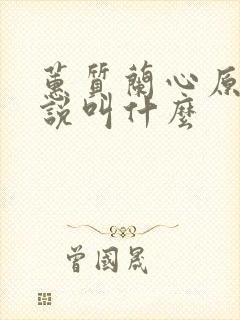 蕙質蘭心原
說叫什麼
曾國晟